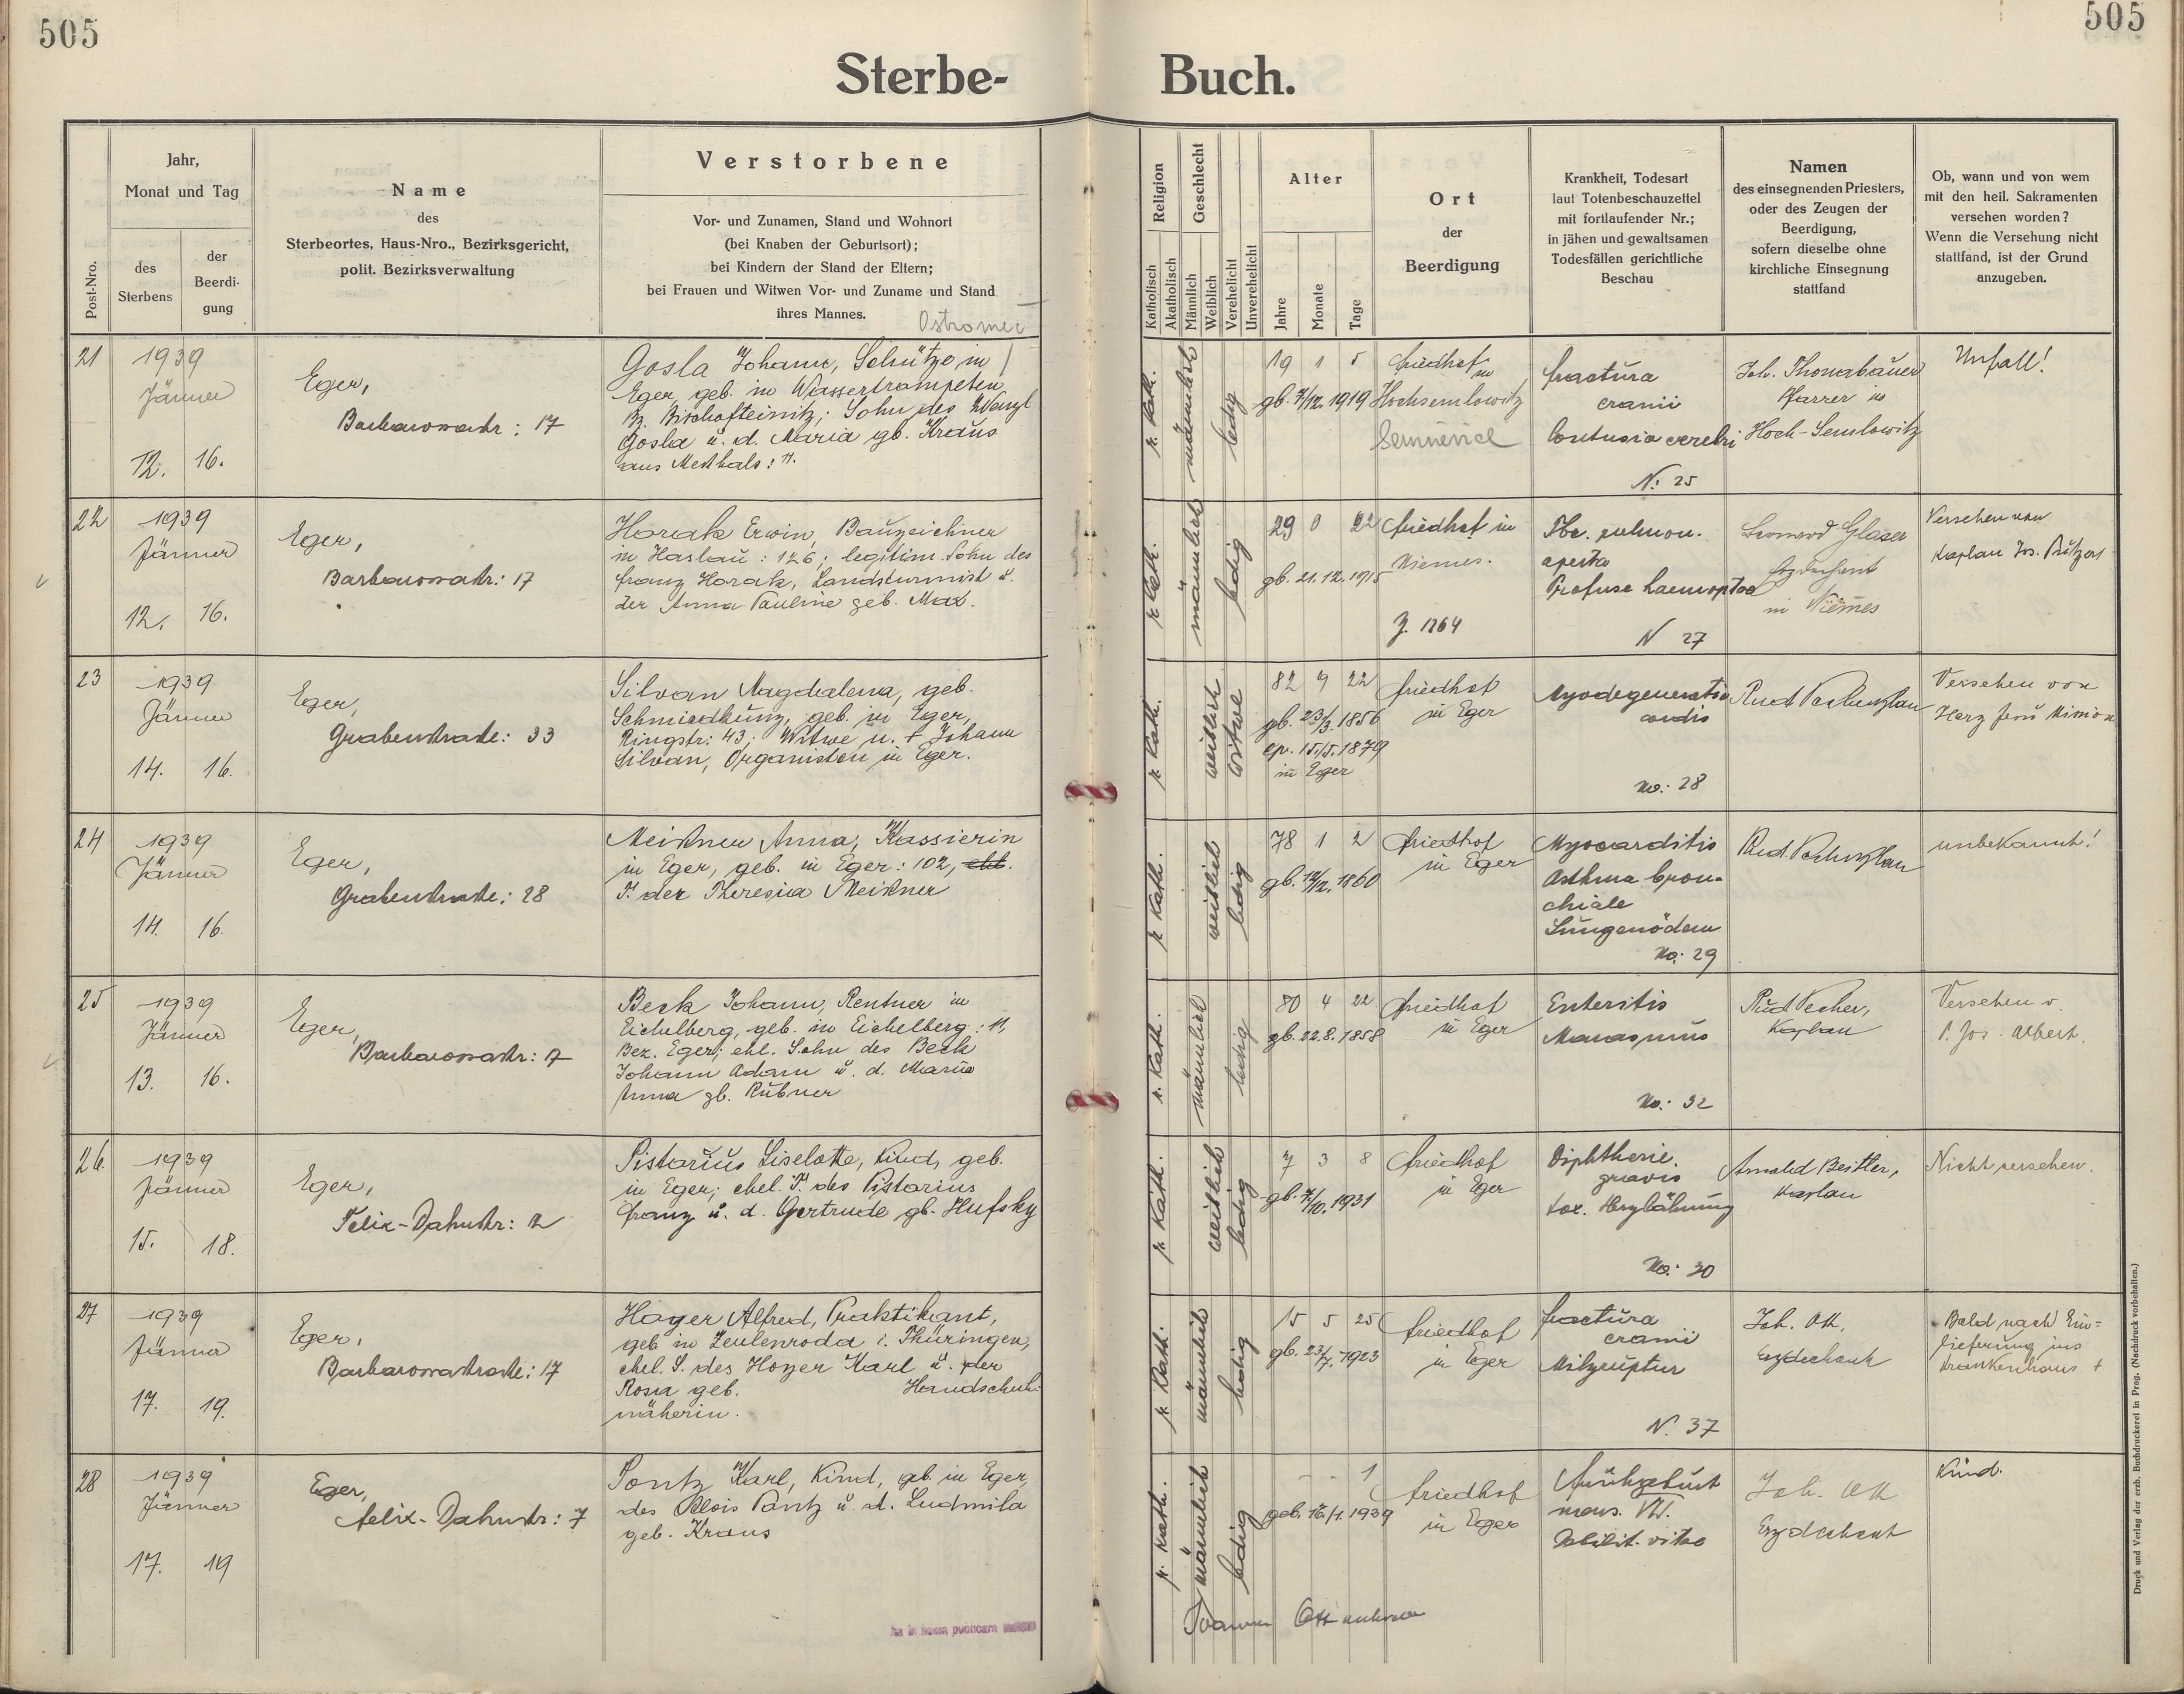 505
505
Sterbe-
Buch.
Post-Nro.
Jahr,
Monat und Tag
des
Sterbens
der
Beerdi-
gung
Name
des
Sterbeortes, Haus-Nro., Bezirksgericht,
polit. Bezirksverwaltung
Verstorbene
Vor- und Zunamen, Stand und Wohnort
(bei Knaben der Geburtsort);
bei Kindern der Stand der Eltern;
bei Frauen und Witwen Vor- und Zuname und Stand
ihres Mannes.
Religion
Katholisch
Akatholisch
Geschlecht
Männlich
Weiblich
Verehelicht
Unverehelicht
Alter
Jahre
Monate
Tage
Ort
der
Beerdigung
Krankheit, Todesart
laut Totenbeschauzettel
mit fortlaufender Nr.;
in jähen und gewaltsamen
Todesfällen gerichtliche
Beschau
Namen
des einsegnenden Priesters,
oder des Zeugen der
Beerdigung,
sofern dieselbe ohne
kirchliche Einsegnung
stattfand
Ob, wann und von wem
mit den heil. Sakramenten
versehen worden?
Wenn die Versehung nicht
stattfand, ist der Grund
anzugeben.
21
1939
Jänner
12. 16.
Eger,
Barbarossastr: 17
Gosla Johann, Schütze in
Eger, geb. in Wassertrompeten
Bz. Bischofteinitz; Sohn des Wenzl
Gosla u. d. Maria gb. Kraus
r. kath.
männlich
ledig
19 1 5
gb. 7/12. 1919
Friedhof in
Hochsemlowitz
Fractura
cranii
Contusia cerebri
N: 25
Joh. Thomabauer
Pfarrer in
Hoch-Semlowitz
Unfall!
22
1939
Jänner
12. 16.
Eger,
Barbarossastr: 17
Horak Erwin, Bauzeichner
in Haslau: 126; legitim. Sohn des
Franz Horak, Landsturmist u.
der Anna Pauline geb. Max.
r. kath.
männlich
ledig
29 0 22
gb. 21. 12. 1915
Friedhof in
Niemes.
Z. 1264
Tbc. pulmon.
aperta
Profuse haemoptoe
N 27
Glaser
in Niemes
Versehen von
Kaplan Jos.
23
1939
Jänner
14. 16.
Eger,
Grabenstrasse: 33
Silvan Magdalena, geb.
geb. in Eger,
Ringstr: 43; Witwe n. † Johann
Silvan, Organisten in Eger.
r. kath.
weiblich
Witwe
82 9 22
gb. 23/3. 1856
cp. 15./5. 1879
in Eger
Friedhof
in Eger
Myodegeneratio
cordis
No: 28
Versehen von
Herz Jesu Mission
24
1939
Jänner
14. 16.
Eger,
Grabenstrasse: 28
Meißner Anna, Kassierin
in Eger, geb. in Eger: 102, ehl.
T. der Theresia Meißner
r. kath.
weiblich
ledig
78 1 2
gb. 12/12. 1860
Friedhof
in Eger
Myocarditis
Asthma bron-
chiale
Lungenödem
No: 29
unbekannt!
25
1939
Jänner
13. 16.
Eger,
Barbarossastr: 17
Beck Johann, Rentner in
Eichelberg, geb. in Eichelberg: 11,
Bez. Eger; ehl. Sohn des Beck
Johann Adam u. d. Maria
Anna gb. Rubner
r. kath.
männlich
ledig
80 4 22
gb. 22. 8. 1858
Friedhof
in Eger
Enteritis
Marasmus
No: 32
Rud Pecher,
Kaplan
Versehen v.
P. Jos. Albert.
26.
1939
Jänner
15. 18.
Eger,
Felix-Dahnstr: 12
Pistorius Liselotte, Kind, geb.
in Eger; ehel. T. des Pistorius
Franz u. d. Gertrude gb. Hufsky
r. kath.
weiblich
ledig
7 3 8
gb. 7/10. 1931
Friedhof
in Eger
Diphtherie.
gravis
tox. Herzlähmung
No: 30
Arnold Beitler,
Kaplan
Nicht versehen.
27
1939
Jänner
17. 19.
Eger,
Barbarossastrasse: 17
Hoyer Alfred, Praktikant,
geb in Zeulenroda i. Thüringen,
ehel. S. des Hoyer Karl u. der
Rosa geb. Handschuh-
näherin.
r. kath.
männlich
ledig
15 5 25
gb. 23/7. 1923
Friedhof
in Eger
Fractura
cranii
Milzruptur
N. 37
Joh. Ott,
Erzdechant
Bald nach Ein=
lieferung ins
Krankenhaus †
28
1939
Jänner
17. 19
Eger,
Felix-Dahnstr: 7
Pontz Karl, Kind, geb. in Eger,
des Alois Pontz u. d. Ludmila
geb. Kraus
r. kath.
männlich
ledig
- - 1
geb. 16./1. 1939
Friedhof
in Eger
Frühgeburt
mens. VII.
Debilit. vitae
Joh. Ott
Erzdechant
Kind.
Druck und Verlag der erzb. Buchdruckerei in Prag. (Nachdruck vorbehalten.)